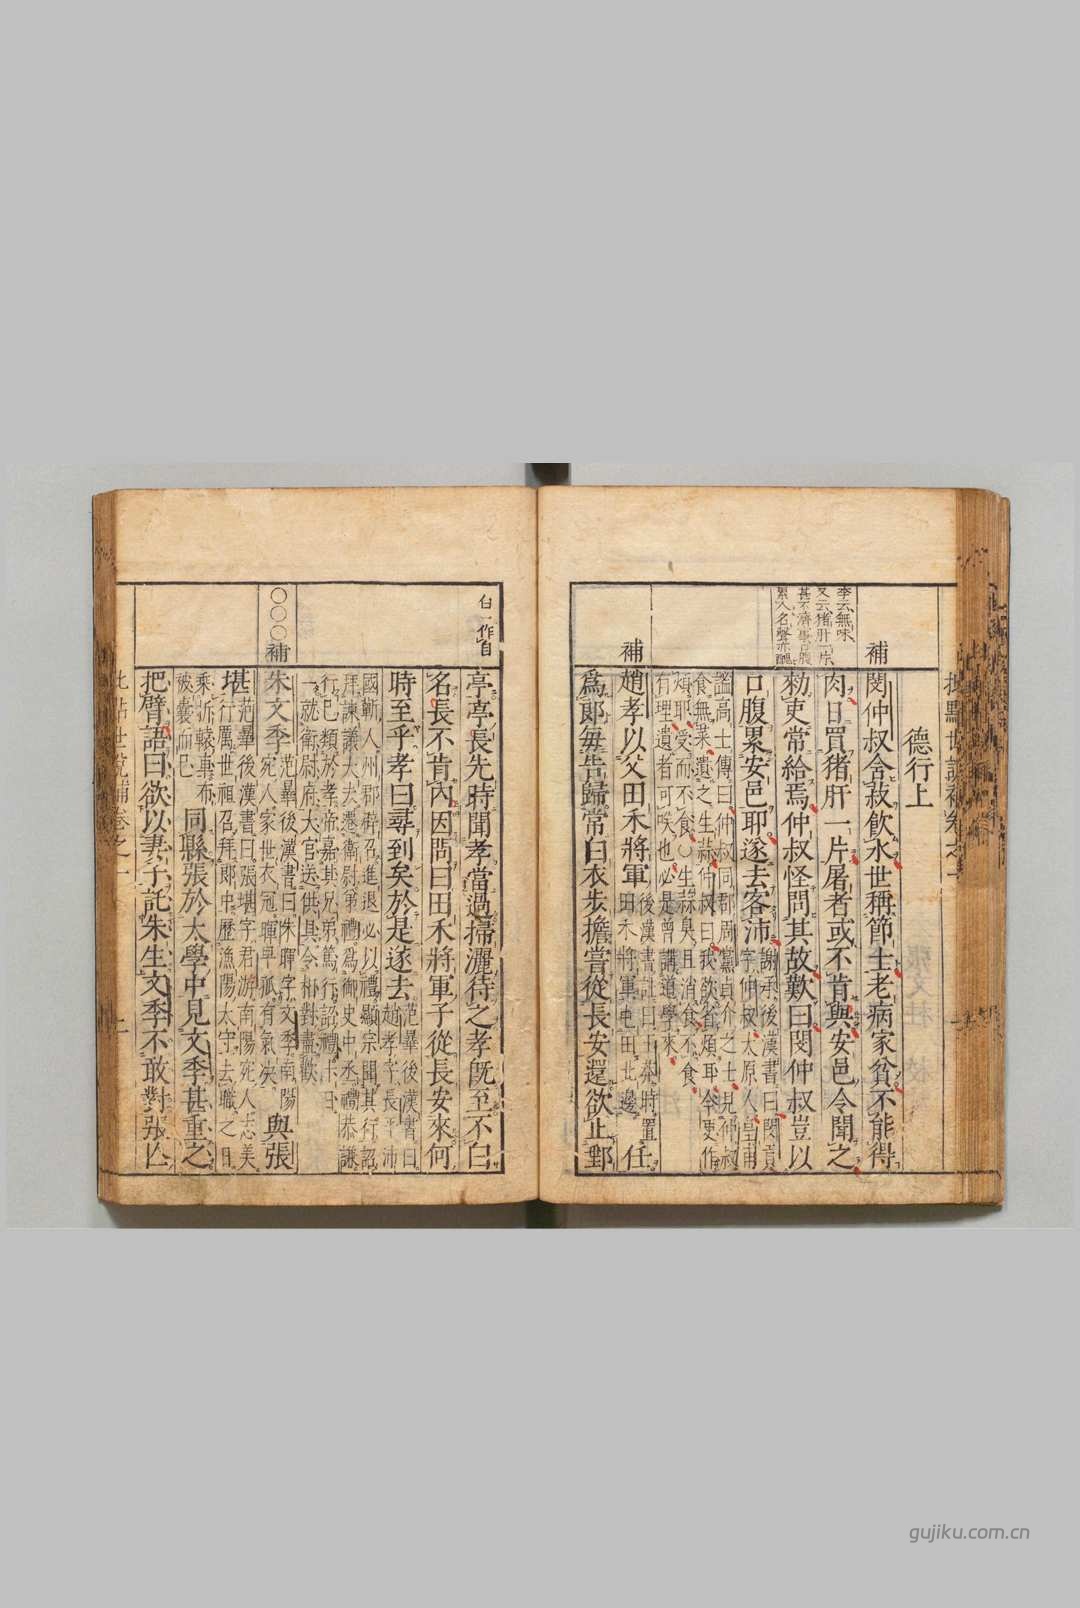 德行上
補
閔仲叔含菽飲水世稱節士老病家貧不能得
肉日買猪肝一片屠者或不肯與安邑令聞之
李云無味
又云猪肝一片
甚不濟事口腹
累人名聲亦醜
勑吏常給焉仲叔怪問其故歎曰閔仲叔豈以
口腹累安邑耶遂去客沛
謝承後漢書曰閔貢
字仲叔太原人皇甫
謐高士傳曰仲叔同郡周黨貞介之士見仲叔
食無菜遺之生蒜仲叔曰我欲省煩耳今更作
煩耶受而不食○生蒜臭且消食不食
有理遺者可咲也必是曾講道學來
補
趙孝以父田禾將軍
後漢書注曰王莽時置
田禾將軍屯田北邊
任
爲郎每告歸常白衣步擔嘗從長安還欲止郵
白一作自
亭亭長先時聞孝當過掃灑待之孝既至不白
名長不肯內因問曰田禾將軍子從長安來何
時至乎孝曰尋到矣於是遂去
范曄後漢書曰
趙孝字長平沛
國蘄人州郡辟召進退必以禮顯宗聞其行詔
拜諫議大夫遷衛尉弟禮爲御史中丞禮恭謙
行已類於孝帝嘉其兄弟篤行詔禮十日
一就衛尉府太官送供具令相對盡歡
○○○
補
朱文季
范曄後漢書曰朱暉字文季南陽
宛人家世衣冠暉早孤有氣决
與張
堪
范曄後漢書曰張堪字君游南陽宛人志美
行厲世祖召拜郎中歷漁陽太守去職之日
乘折轅車布
被囊而已
同縣張於太學中見文季甚重之
把臂語曰欲以妻子託朱生文季不敢對張亡
gujiku.com.cn